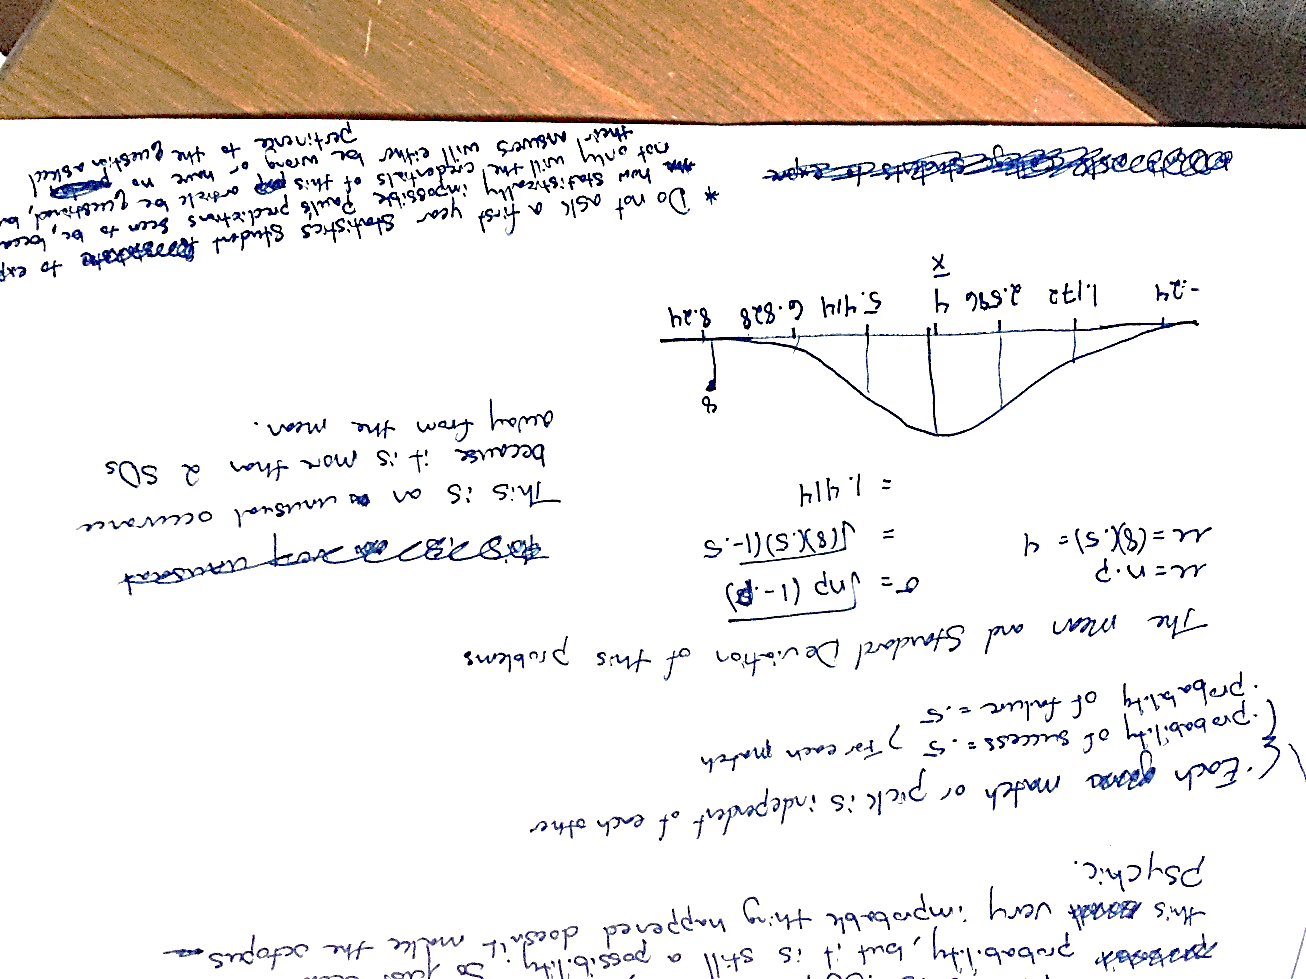 probability, but it is still a possibility. So just
this very improbable thing happened doesn't make the octopus
Psychic.
· Each match or pick is independent of each other
· probability of success = .5 } for each match
· probability of failure = .5
The mean and Standard Deviation of this problems
μ = n·p
σ = √np(1-p)
μ = (8)(.5) = 4
= √(8)(.5)(1-.5
= 1.414
This is an unusual occurance
because it is more than 2 SDs
away from the mean.
8
-.24 1.172 2.596 4 5.414 6.828 8.24
x
* Do not ask a first year Statistics Student to exp
how statistically impossible Paul's predictions seem to be, beca
not only will the credentials of this article be questioned, bu
their answers will either be wrong or have no
pertinence to the question asked